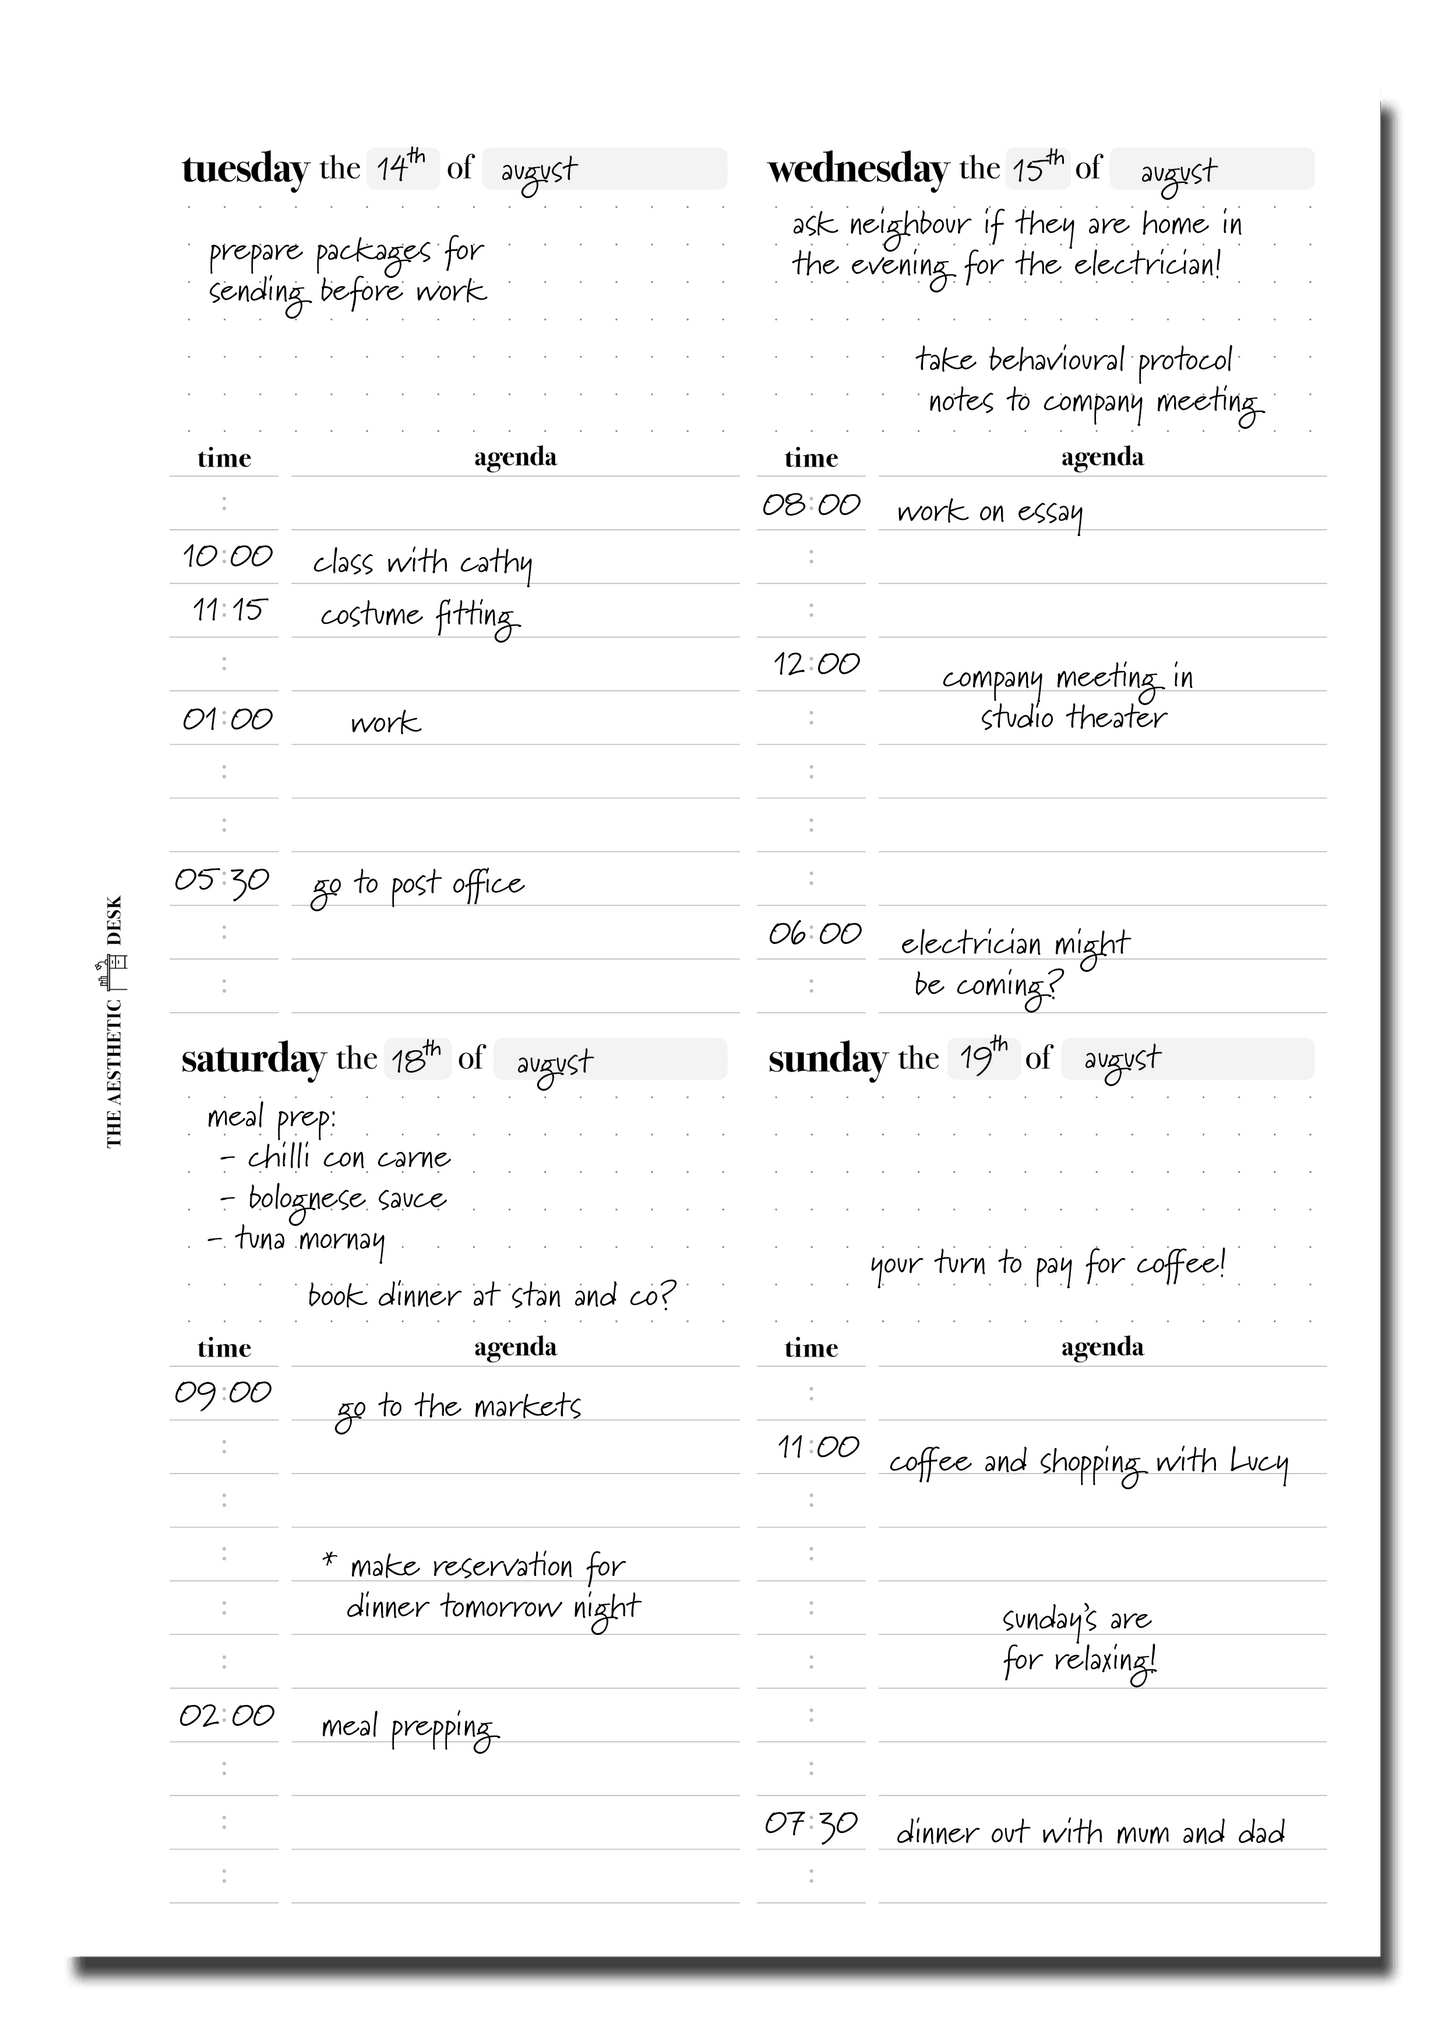 tuesday the 14th of august
prepare packages for
sending before work
time agenda
:
10:00 class with cathy
11:15 costume fitting
:
01:00 work
:
:
05:30 go to post office
:
:
wednesday the 15th of august
ask neighbour if they are home in
the evening for the electrician!
take behavioural protocol
notes to company meeting
time agenda
08:00 work on essay
:
:
12:00 company meeting in
: studio theater
:
:
:
06:00 electrician might
: be coming?
THE AESTHETIC DESK
saturday the 18th of august
meal prep:
- chilli con carne
- bolognese sauce
- tuna mornay
book dinner at stan and co?
time agenda
09:00 go to the markets
:
:
: * make reservation for
: dinner tomorrow night
:
02:00 meal prepping
:
:
:
sunday the 19th of august
your turn to pay for coffee!
time agenda
:
11:00 coffee and shopping with Lucy
:
:
: sunday's are
: for relaxing!
:
:
07:30 dinner out with mum and dad
: